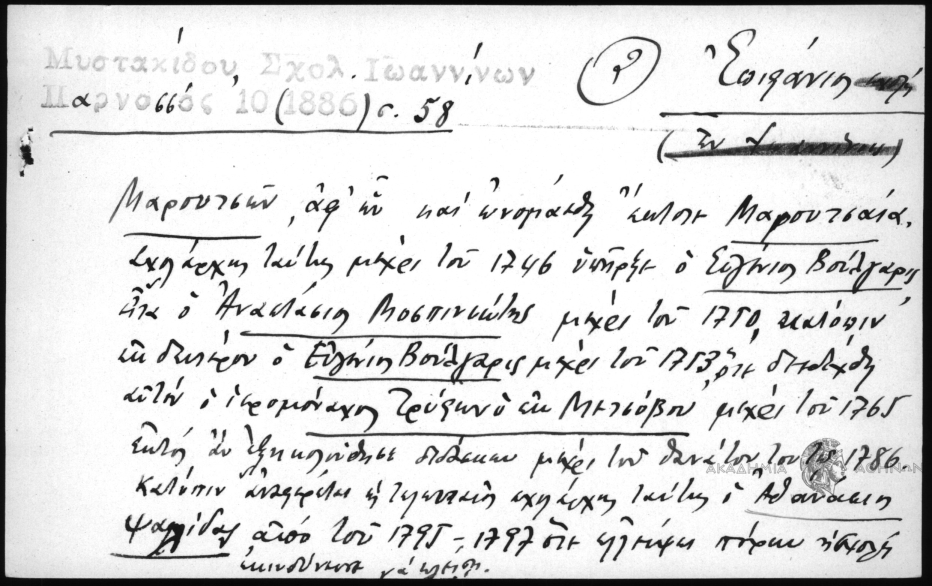 Μυστακίδου, Σχολ. Ἰωαννίνων
Παρνασσός 10 (1886) σ. 58
2
Ἐπιφάνιος
Μαρουτσῶν, ἀφ' ὧν καὶ ὠνομάσθη ἔκτοτε Μαρουτσαία.
σχολάρχης ταύτης μέχρι τοῦ 1746 ὑπῆρξε ὁ Εὐγένιος Βούλγαρις
εἶτα ὁ Ἀναστάσιος Μοσπινιώτης μέχρι τοῦ 1750, κατόπιν
ἐκ δευτέρου ὁ Εὐγένιος Βούλγαρις μέχρι τοῦ 1753, ὅτε διεδέχθη
αὐτόν ὁ ἱερομόναχος Τρύφων ὁ ἐκ Μετσόβου μέχρι τοῦ 1765
ἐξηκολούθησε διδάσκων μέχρι τοῦ θανάτου του τῷ 1786.
Κατόπιν ἀναφέρεται ὡς τελευταῖος σχολάρχης ταύτης ὁ Ἀθανάσιος
Ψαλίδας ἀπό τοῦ 1795-1797 ὅτε ἐλλείψει πόρων ἡ σχολή
ἐκινδύνευσε νά κλείσῃ.
ΑΚΑΔΗΜΙΑ ΑΘΗΝΩΝ